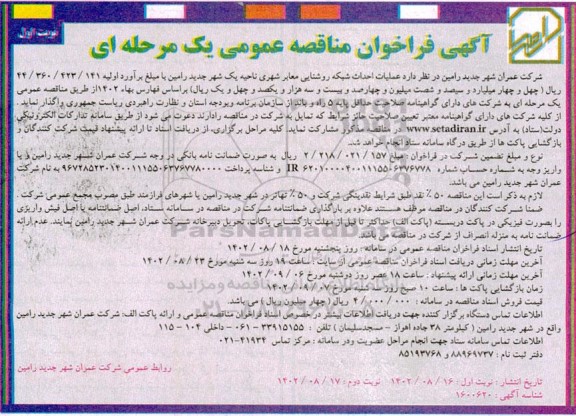 نوبت اول
آگهی فراخوان مناقصه عمومی یک مرحله ای
شرکت عمران شهر جدید رامین در نظر دارد عملیات احداث شبکه روشنایی معابر شهری ناحیه یک شهر جدید رامین با مبلغ برآورد اولیه ۴۴/۳۶۰/۴۲۳/۱۴۱
ریال ( چهل و چهار میلیارد و سیصد و شصت میلیون و چهارصد و بیست و سه هزار و یکصد و چهل و یک ریال) براساس فهرس بهاء ۱۴۰۲ از طریق مناقصه عمومی
یک مرحله ای به شرکت های دارای گواهینامه صلاحیت حداقل پایه ۵ راه و باند از سازمان برنامه وبودجه استان و نظارت راهبردی ریاست جمهوری واگذار نماید.
از کلیه شرکت های دارای گواهینامه معتبر تعیین صلاحیت حائز شرایط که تمایل به شرکت در مناقصه رادارند دعوت می شود از طریق سامانه تدارکات الکترونیکی
دولت(ستاد) به آدرس www.setadiran.ir در مناقصه مذکور مشارکت نماید. کلیه مراحل برگزاری، از دریافت اسناد تا ارائه پیشنهاد قیمت شرکت کنندگان و
بازگشایی پاکت ها از طریق درگاه سامانه ستاد انجام خواهد شد.
نوع و مبلغ تضمین شرکت در فراخوان : مبلغ ۲/۲۱۸/۰۲۱/۱۵۷ ریال به صورت ضمانت نامه بانکی در وجه شرکت عمران شهر جدید رامین و یا
واریز وجه به شماره حساب شماره IR ۶۲۰۱۰۰۰۰۴۰۰۱۱۱۵۵۰۶۳۷۶۷۷۸ و شناسه پرداخت ۹۶۷۲۸۵۲۳۰۱۴۰۰۱۱۱۵۵۰۶۳۷۶۷۷۸۰۰۰۰ به نام شرکت
عمران شهر جدید رامین می باشد.
لازم به ذکر است این مناقصه ۵۰ ٪ نقد طبق شرایط نقدینگی شرکت و ۵۰ ٪ تهاتر در شهر جدید رامین یا شهرهای فرازمند طبق مصوب مجمع عمومی شرکت
ضمنا شرکت کنندگان در مناقصه موظف هستند علاوه بر بارگذاری ضمانتنامه شرکت در مناقصه در سامانه ستاد، اصل ضمانتنامه یا اصل فیش واریزی
را بصورت فیزیکی در پاکت دربسته (پاکت الف) حداکثر تا قبل از مهلت بازگشایی پاکات، تحویل دبیرخانه شرکت عمران شهر جدید رامین نمایند. عدم ارائه
ضمانت نامه به منزله انصراف از شرکت در مناقصه می باشد.
تاریخ انتشار اسناد فراخوان مناقصه عمومی در سامانه : روز پنجشنبه مورخ ۱۸ / ۰۸ / ۱۴۰۲
آخرین مهلت زمانی دریافت اسناد فراخوان مناقصه عمومی از سایت : ساعت ۱۹ روز سه شنبه مورخ ۲۳ / ۰۸ / ۱۴۰۲
آخرین مهلت زمانی ارائه پیشنهاد : ساعت ۱۸ عصر روز دوشنبه مورخ ۰۶ / ۰۹ / ۱۴۰۲
زمان بازگشایی پاکت ها : ساعت ۱۰ صبح روز مورخ ۰۷ / ۰۹ / ۱۴۰۲
قیمت فروش اسناد مناقصه در سامانه : ۴/۰۰۰/۰۰۰ ریال ( چهار میلیون ریال ) می باشد.
اطلاعات تماس دستگاه برگزار کننده جهت دریافت اطلاعات بیشتر در خصوص اسناد فراخوان مناقصه عمومی و ارائه پاکت الف: شرکت عمران
واقع در شهر جدید رامین ( کیلومتر ۳۸ جاده اهواز - مسجدسلیمان ) تلفن : ۳۳۹۱۵۱۵۵ - ۰۶۱ - داخلی ۱۰۴ - ۱۱۵
اطلاعات تماس سامانه ستاد جهت انجام مراحل عضویت ودر سامانه : مرکز تماس ۴۱۹۳۴-۰۲۱
دفتر ثبت نام : ۸۸۹۶۹۷۳۷ و ۸۵۱۹۳۷۶۸
روابط عمومی شرکت عمران شهر جدید رامین
تاریخ انتشار : نوبت اول : ۱۶ / ۰۸ / ۱۴۰۲ نوبت دوم : ۱۷ / ۰۸ / ۱۴۰۲
شناسه آگهی : ۱۶۰۰۶۲۰